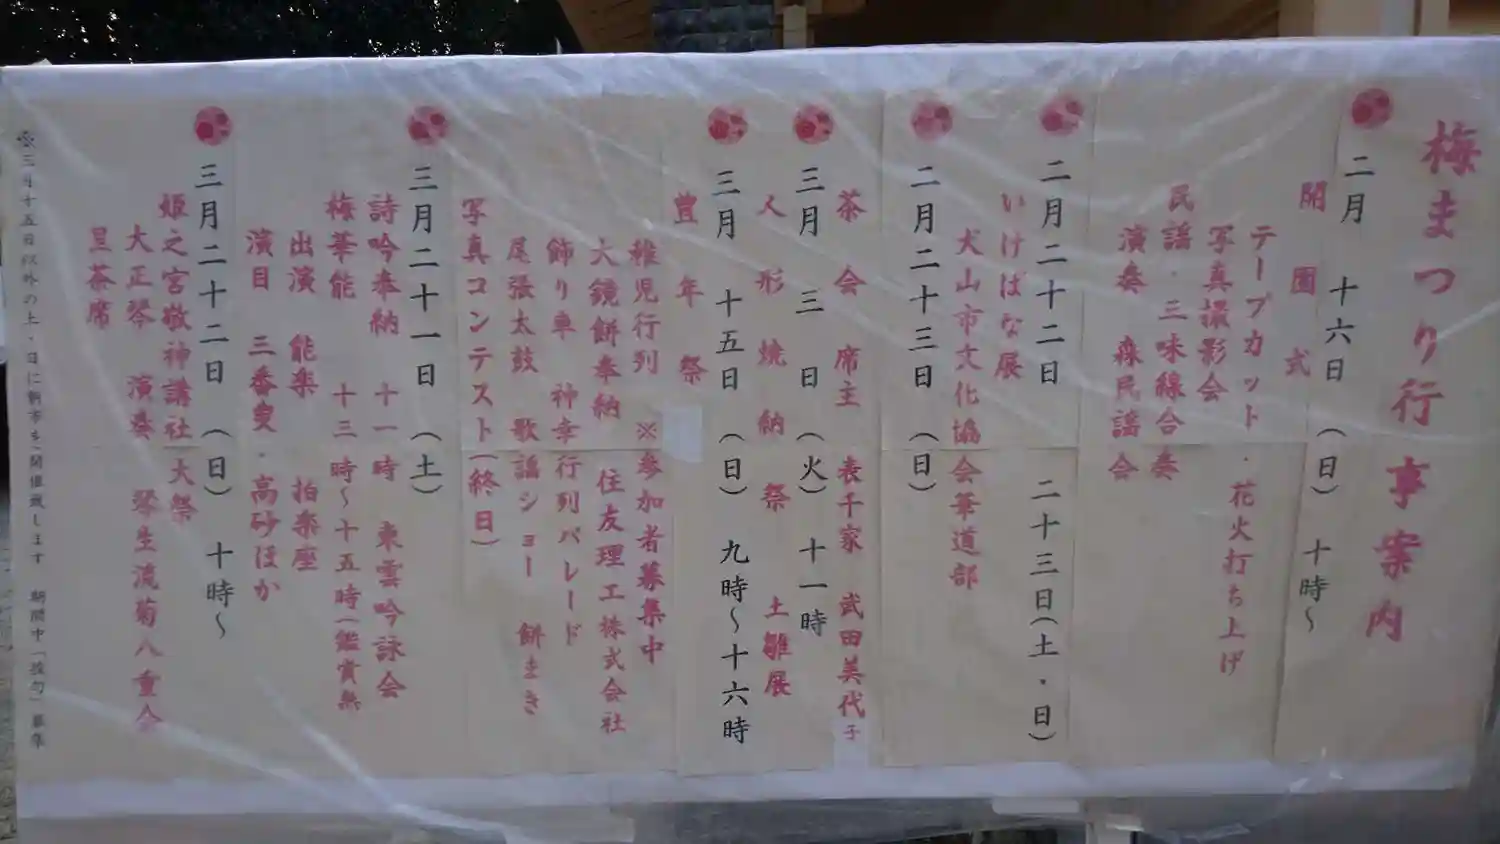 梅まつり行事案内
二月 十六日（日） 十時～
開園式
テープカット・花火打ち上げ
写真撮影会
民謡・三味線合奏
演奏 森民謡会
二月二十二日 二十三日（土・日）
いけばな展
犬山市文化協会華道部
二月二十三日（日）
茶会 席主 表千家 武田美代子
三月 三 日（火） 十一時
人形焼納祭 土雛展
三月 十五日（日） 九時～十六時
豊年祭
稚児行列 ※参加者募集中
大鏡餅奉納 住友理工株式会社
飾り車 神幸行列パレード
尾張太鼓 歌謡ショー 餅まき
写真コンテスト（終日）
三月二十一日（土）
詩吟奉納 十一時 東雲吟詠会
梅華能 十三時～十五時（鑑賞無
出演 能楽 拍楽座
演目 三番叟・高砂ほか
三月二十二日（日） 十時～
姫之宮敬神講社大祭
大正琴 演奏 琴生流菊八重会
呈茶席
※三月十五日以外の土・日に朝市を開催致します 期間中「俳句」募集